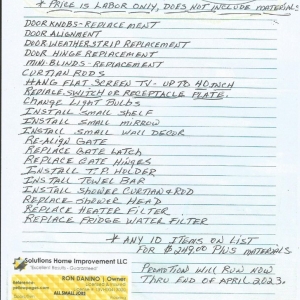 * PRICE IS LABOR ONLY, DOES NOT INCLUDE MATERIALS
DOOR KNOBS - REPLACEMENT
DOOR ALIGNMENT
DOOR WEATHERSTRIP REPLACEMENT
DOOR HINGE REPLACEMENT
MINI BLINDS - REPLACEMENT
CURTIAN RODS
HANG FLAT SCREEN TV - UP TO 40 INCH
REPLACE SWITCH OR RECEPTACLE PLATE.
CHANGE LIGHT BULBS
INSTALL SMALL SHELF
INSTALL SMALL MIRROW
INSTALL SMALL WALL DECOR
RE-ALIGN GATE
REPLACE GATE LATCH
REPLACE GATE HINGES
INSTALL T.P. HOLDER
INSTALL TOWEL BAR
INSTALL SHOWER CURTIAN & ROD
REPLACE SHOWER HEAD
REPLACE HEATER FILTER
REPLACE FRIDGE WATER FILTER
* ANY 10 ITEMS ON LIST
FOR $249.00 PLUS MATERIALS
PROMOTION WILL RUN NOW
THRU END OF APRIL 2023.
Solutions Home Improvement LLC
"Excellent Results - Guaranteed"
RON DANINO | Owner
ALL SMALL JOBS